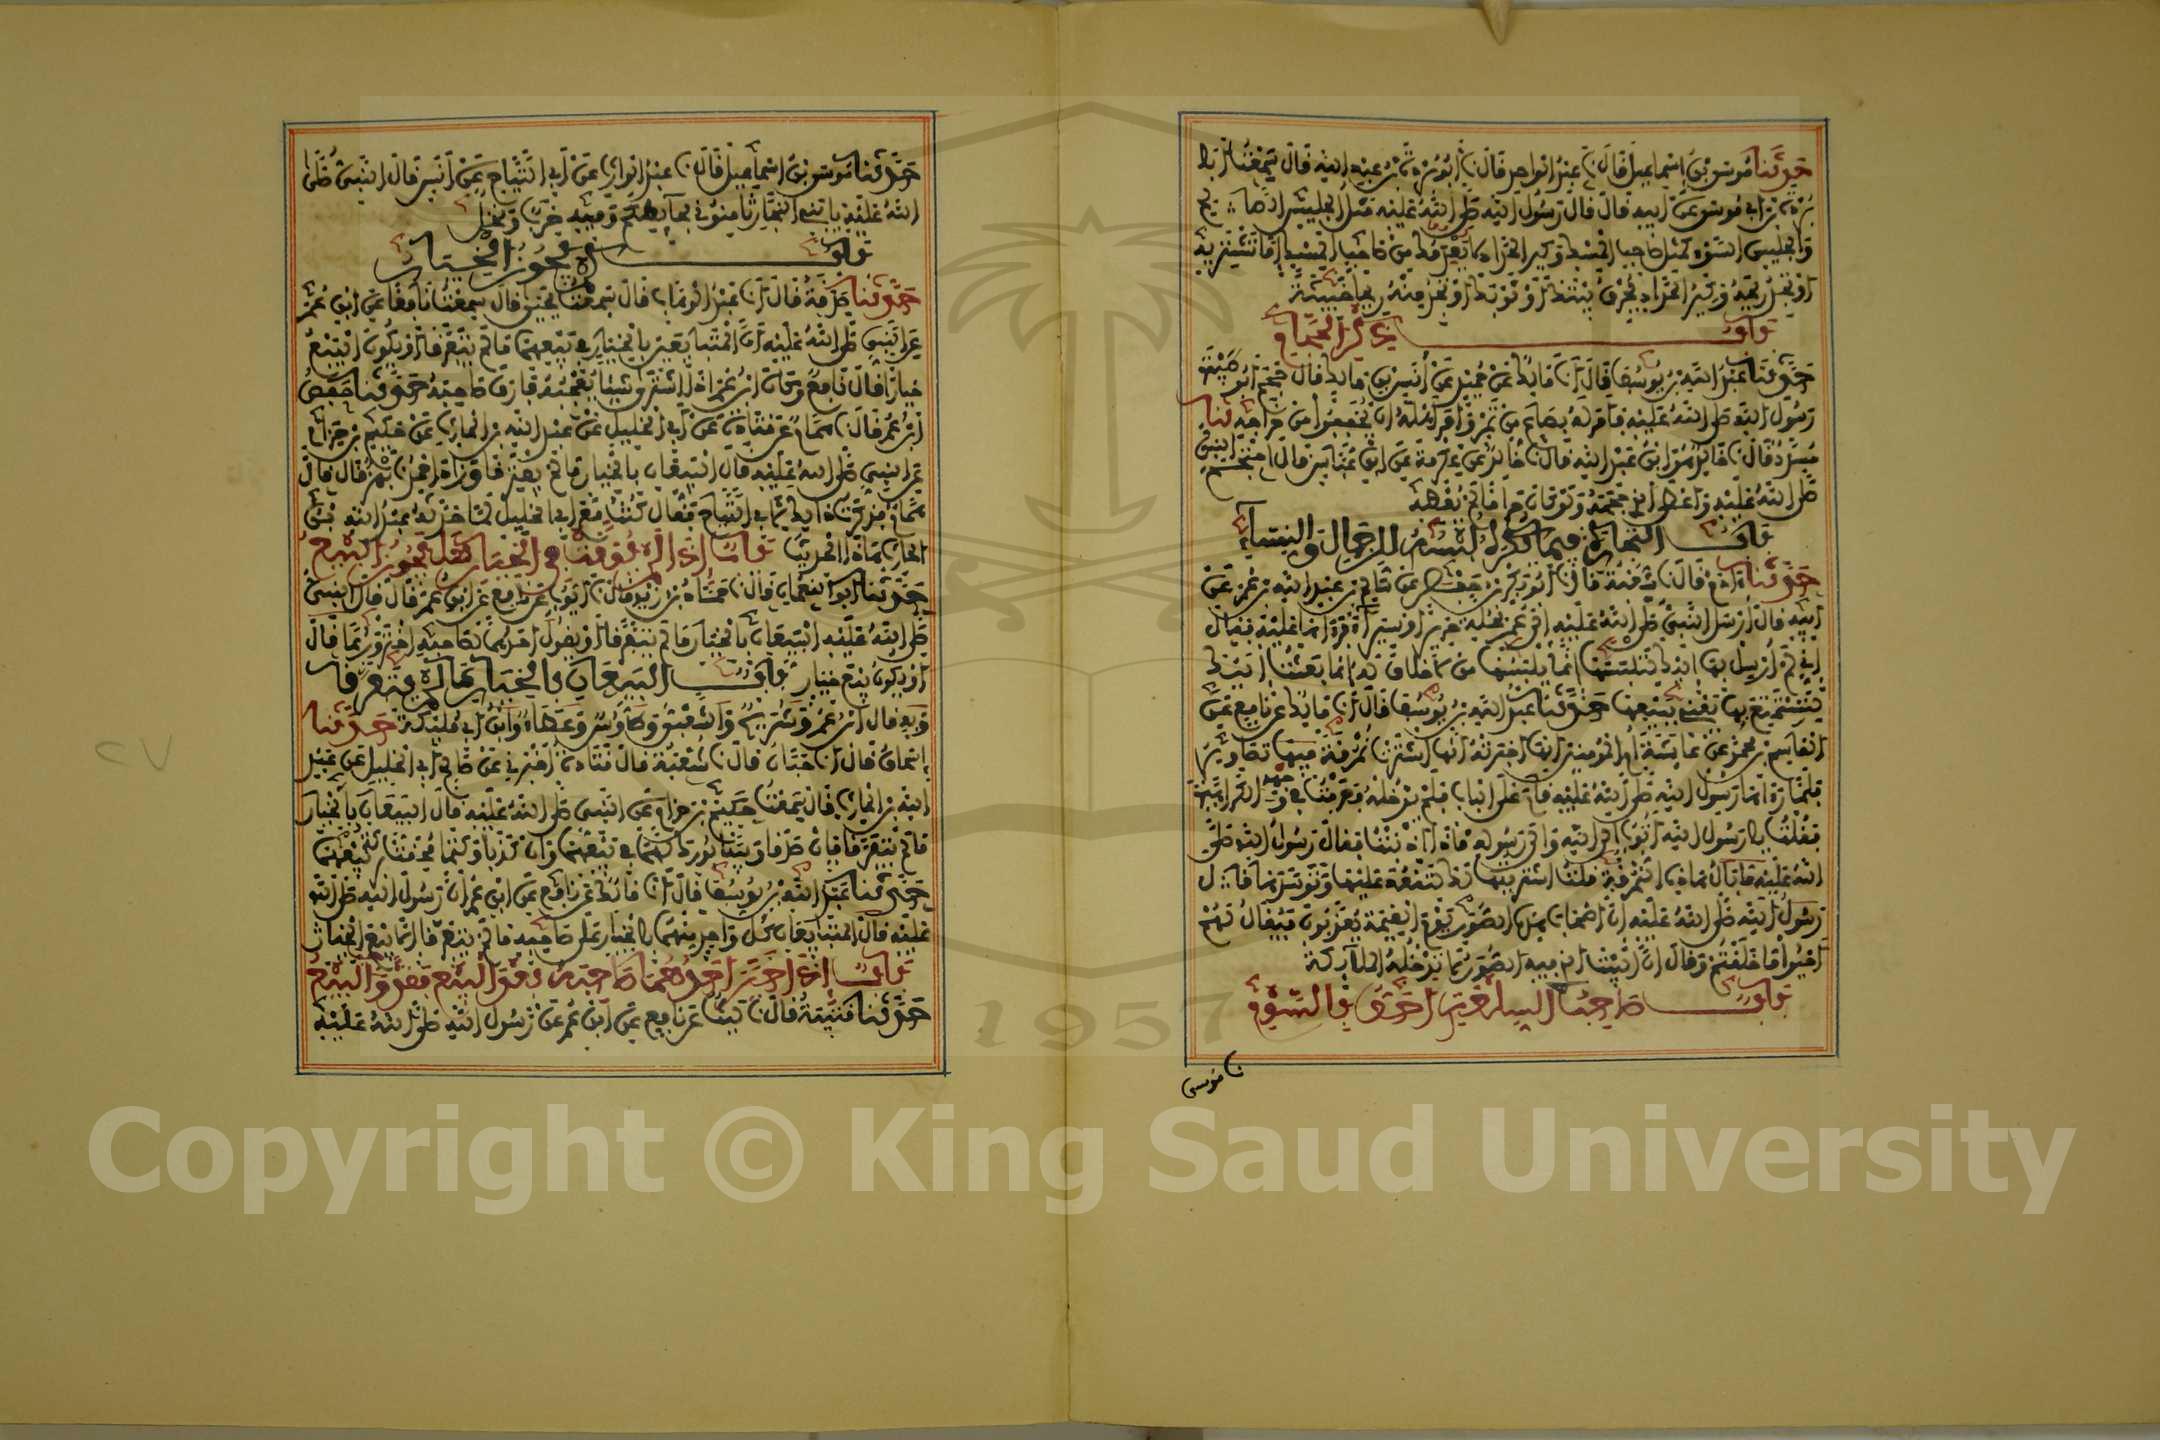 حدثنا موسى بن إسماعيل قال نا عبد الواحد قال نا أبو بردة بن عبد الله قال سمعت أبا
بردة بن أبي موسى عن أبيه قال قال رسول الله صلى الله عليه مثل الجليس الصالح
والجليس السوء كمثل صاحب المسك وكير الحداد لا يعدمك من صاحب المسك إما تشتريه
أو تجد ريحه وكير الحداد يحرق بيتك أو ثوبك أو تجد منه ريحا خبيثة
باب ذكر الحجام
حدثنا عبد الله بن يوسف قال أنا مالك عن حميد عن أنس بن مالك قال حجم أبو طيبة
رسول الله صلى الله عليه فأمر له بصاع من تمر وأمر أهله أن يخففوا من خراجه نا
مسدد قال نا خالد هو ابن عبد الله قال نا خالد عن عكرمة عن ابن عباس قال احتجم النبي
صلى الله عليه وأعطى الذي حجمه ولو كان حراما لم يعطه
باب التجارة فيما يكره لبسه للرجال والنساء
حدثنا آدم قال نا شعبة قال نا أبو بكر بن حفص عن سالم بن عبد الله بن عمر عن
أبيه قال أرسل النبي صلى الله عليه إلى عمر بحلة حرير أو سيراء فرآها عليه فقال
إني لم أرسل بها إليك لتلبسها إنما يلبسها من لا خلاق له إنما بعثت إليك
لتستمتع بها يعني تبيعها حدثنا عبد الله بن يوسف قال أنا مالك عن نافع عن
القاسم بن محمد عن عائشة أم المومنين أنها أخبرته أنها اشترت نمرقة فيها تصاوير
فلما رآها رسول الله صلى الله عليه قام على الباب فلم يدخله فعرفت في وجهه الكراهية
فقلت يا رسول الله أتوب إلى الله وإلى رسوله ماذا أذنبت فقال رسول الله صلى
الله عليه ما بال هذه النمرقة قلت اشتريتها لك لتقعد عليها وتوسدها فقال
رسول الله صلى الله عليه إن أصحاب هذه الصور يوم القيمة يعذبون فيقال لهم
أحيوا ما خلقتم وقال إن البيت الذي فيه الصور لا تدخله الملائكة
باب صاحب السلعة أحق بالسوم
نا موسى
حدثنا موسى بن إسماعيل قال نا عبد الوارث عن أبي التياح عن أنس قال النبي صلى
الله عليه يا بني النجار ثامنوني بحائطكم وفيه خرب ونخل
باب كم يجوز الخيار
حدثنا صدقة قال أنا عبد الوهاب قال سمعت يحيى قال سمعت نافعا عن ابن عمر
عن النبي صلى الله عليه إن المتبايعين بالخيار في بيعهما ما لم يتفرقا أو يكون البيع
خيارا قال نافع وكان ابن عمر إذا اشترى شيئا يعجبه فارق صاحبه حدثنا حفص
ابن عمر قال نا همام عن قتادة عن أبي الخليل عن عبد الله بن الحارث عن حكيم بن حزام
عن النبي صلى الله عليه قال البيعان بالخيار ما لم يفترقا وزاد أحمد نا بهز قال قال
همام فذكرت ذلك لأبي التياح فقال كنت مع أبي الخليل لما حدثه عبد الله بن
الحارث بهذا الحديث باب إذا لم يوقت في الخيار هل يجوز البيع
حدثنا أبو النعمان قال نا حماد بن زيد قال نا أيوب عن نافع عن ابن عمر قال قال النبي
صلى الله عليه البيعان بالخيار ما لم يتفرقا أو يقول أحدهما لصاحبه اختر وربما قال
أو يكون بيع خيار باب البيعان بالخيار ما لم يتفرقا
وبه قال ابن عمر وشريح والشعبي وطاوس وعطاء وابن أبي مليكة حدثنا
إسحاق قال أنا حبان قال نا شعبة قال قتادة أخبرني عن صالح أبي الخليل عن عبد
الله بن الحارث قال سمعت حكيم بن حزام عن النبي صلى الله عليه قال البيعان بالخيار
ما لم يتفرقا فإن صدقا وبينا بورك لهما في بيعهما وإن كذبا وكتما محقت بركة بيعهما
حدثنا عبد الله بن يوسف قال أنا مالك عن نافع عن ابن عمر أن رسول الله صلى الله
عليه قال المتبايعان كل واحد منهما بالخيار على صاحبه ما لم يتفرقا إلا بيع الخيار
باب إذا خير أحدهما صاحبه بعد البيع فقد وجب البيع
حدثنا قتيبة قال نا ليث عن نافع عن ابن عمر عن رسول الله صلى الله عليه
٢٧
1957
Copyright © King Saud University